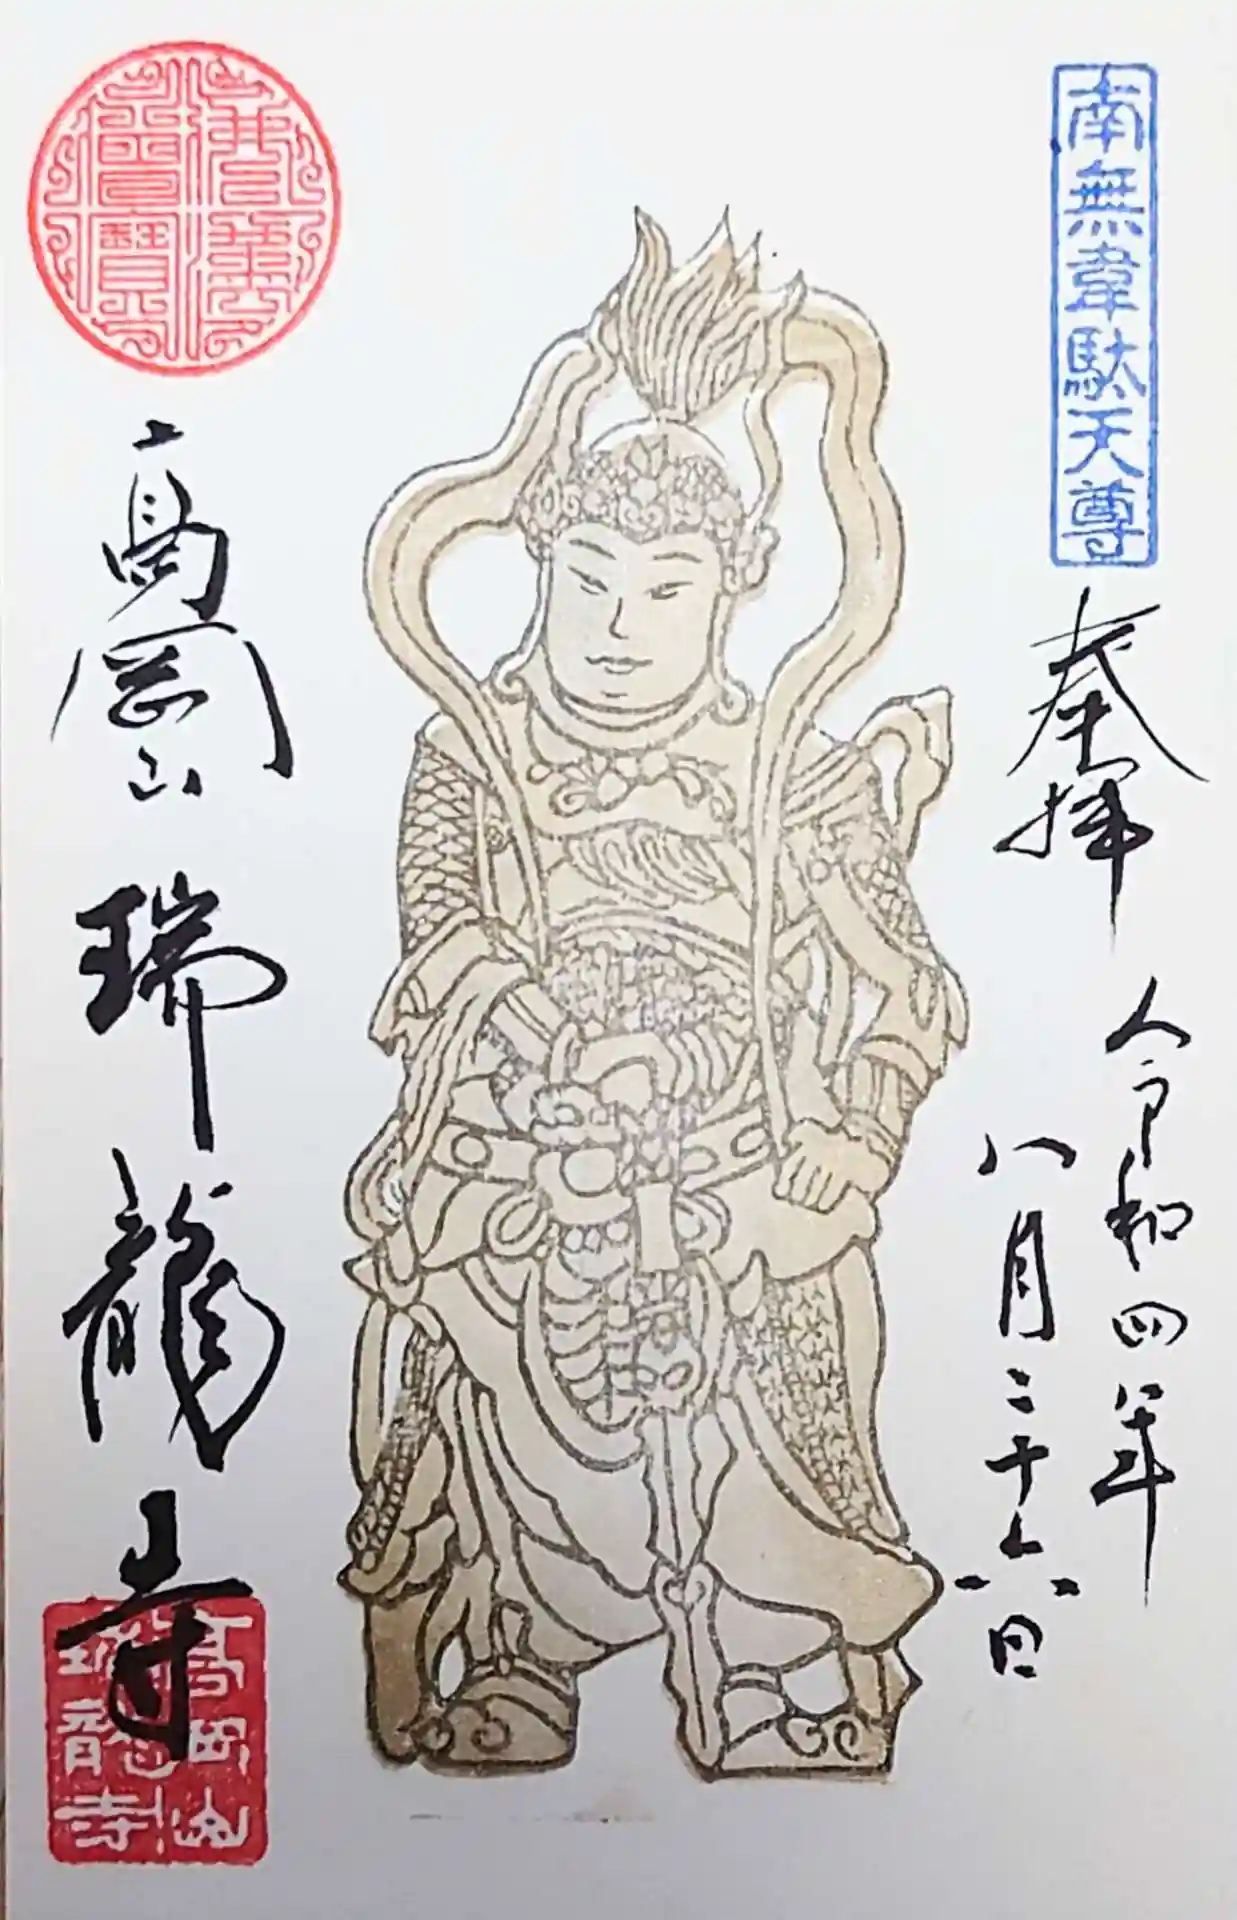 南無韋駄天尊
奉拝
令和四年
八月二十六日
佛法僧寶
高岡山瑞龍寺
高岡山
瑞龍寺